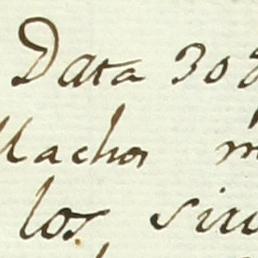 Data 30
Machos
los sir